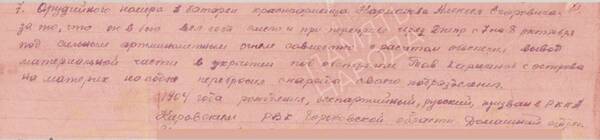 7. Орудийного номера 2 батареи красноармейца Каршакова Алексея Егоровича
за то, что он в бою вел себя смело и при переправе через Днепр с 7 на 8 октября
под сильным артминометным огнем совместно с расчетом обеспечил вывод
материальной части в укрытия под обстрелом. Тов. с острова
на материк на себе перебросил снаряды своего подразделения.
1904 года рождения, беспартийный, русский, призван в РККА
Кировским РВК Горьковской области. Домашний адрес: